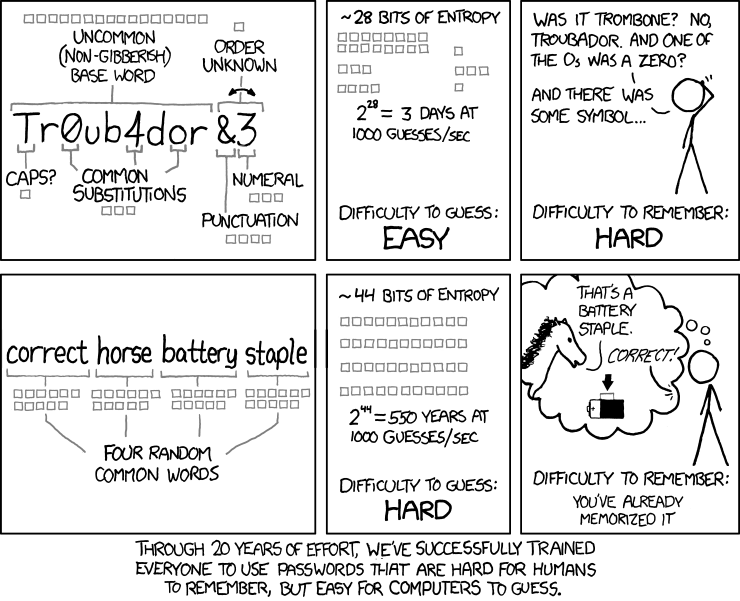 UNCOMMON
(NON-GIBBERISH)
BASE WORD
ORDER
UNKNOWN
Tr0ub4dor &3
CAPS?
COMMON
SUBSTITUTIONS
NUMERAL
PUNCTUATION
~28 BITS OF ENTROPY
2^28 = 3 DAYS AT
1000 GUESSES/SEC
DIFFICULTY TO GUESS:
EASY
WAS IT TROMBONE? NO,
TROUBADOR. AND ONE OF
THE Os WAS A ZERO?
AND THERE WAS
SOME SYMBOL...
DIFFICULTY TO REMEMBER:
HARD
correct horse battery staple
FOUR RANDOM
COMMON WORDS
~44 BITS OF ENTROPY
2^44 = 550 YEARS AT
1000 GUESSES/SEC
DIFFICULTY TO GUESS:
HARD
THAT'S A
BATTERY
STAPLE.
CORRECT!
+
DIFFICULTY TO REMEMBER:
YOU'VE ALREADY
MEMORIZED IT
THROUGH 20 YEARS OF EFFORT, WE'VE SUCCESSFULLY TRAINED
EVERYONE TO USE PASSWORDS THAT ARE HARD FOR HUMANS
TO REMEMBER, BUT EASY FOR COMPUTERS TO GUESS.